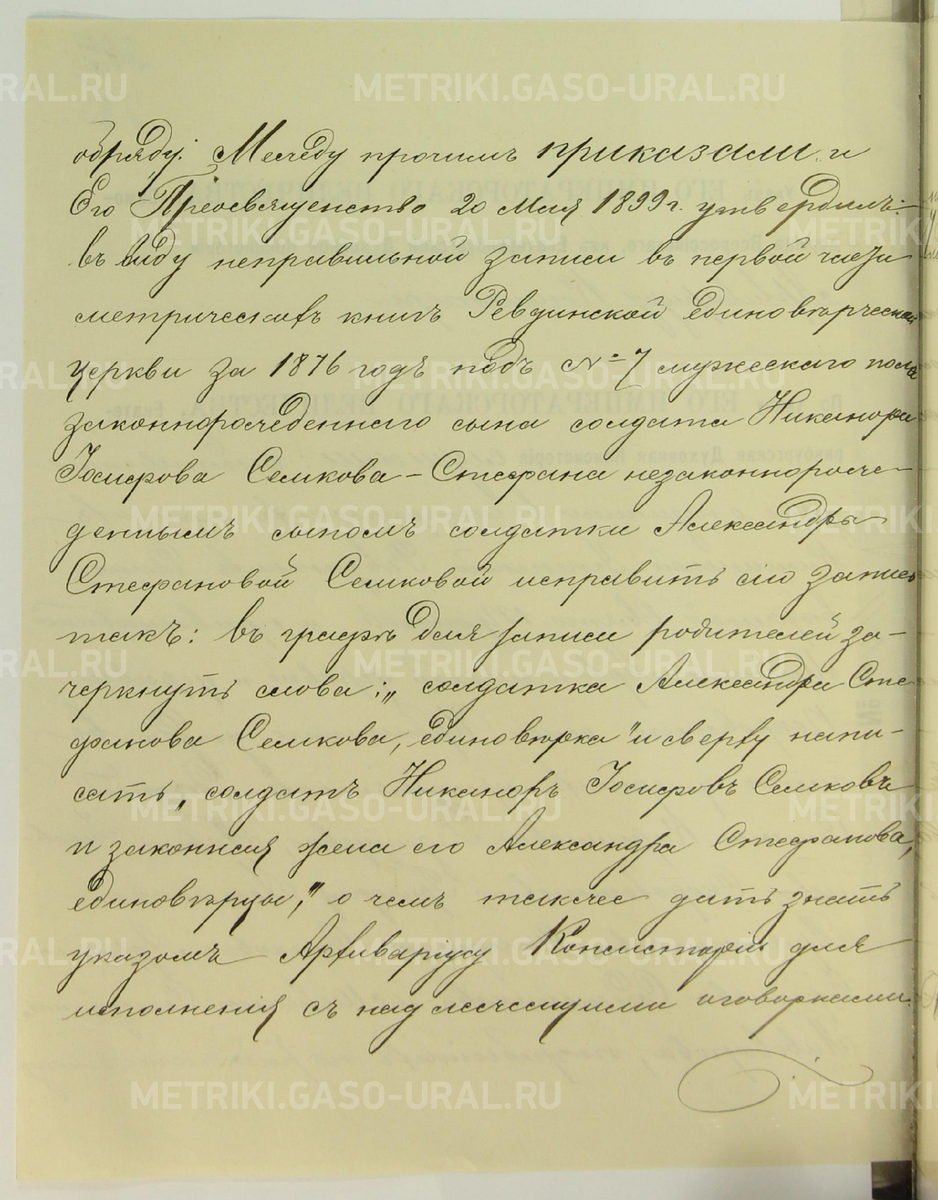 обряду. Между прочимъ приказали и
Его Преосвященство 20 Мая 1899 г. утвердилъ:
въ виду неправильной записи въ первой части
метрическихъ книгъ Ревдинской единовѣрческой
церкви за 1876 годъ подъ № 7 мужескаго пола
законнорожденнаго сына солдата Никанора
Іосифова Семкова – Стефана незаконнорож-
деннымъ сыномъ солдатки Александры
Стефановой Семковой исправить сію запись
такъ: въ графѣ для записи родителей за-
черкнуть слова: „солдатка Александра Сте-
фанова Семкова, единовѣрка" и сверху напи-
сать „солдатъ Никаноръ Іосифовъ Семковъ
и законная жена его Александра Стефанова,
единовѣрцы," о чемъ также дать знать
указомъ Архиваріусу Консисторіи для
исполненія съ надлежащими оговорками.
METRIKI.GASO-URAL.RU